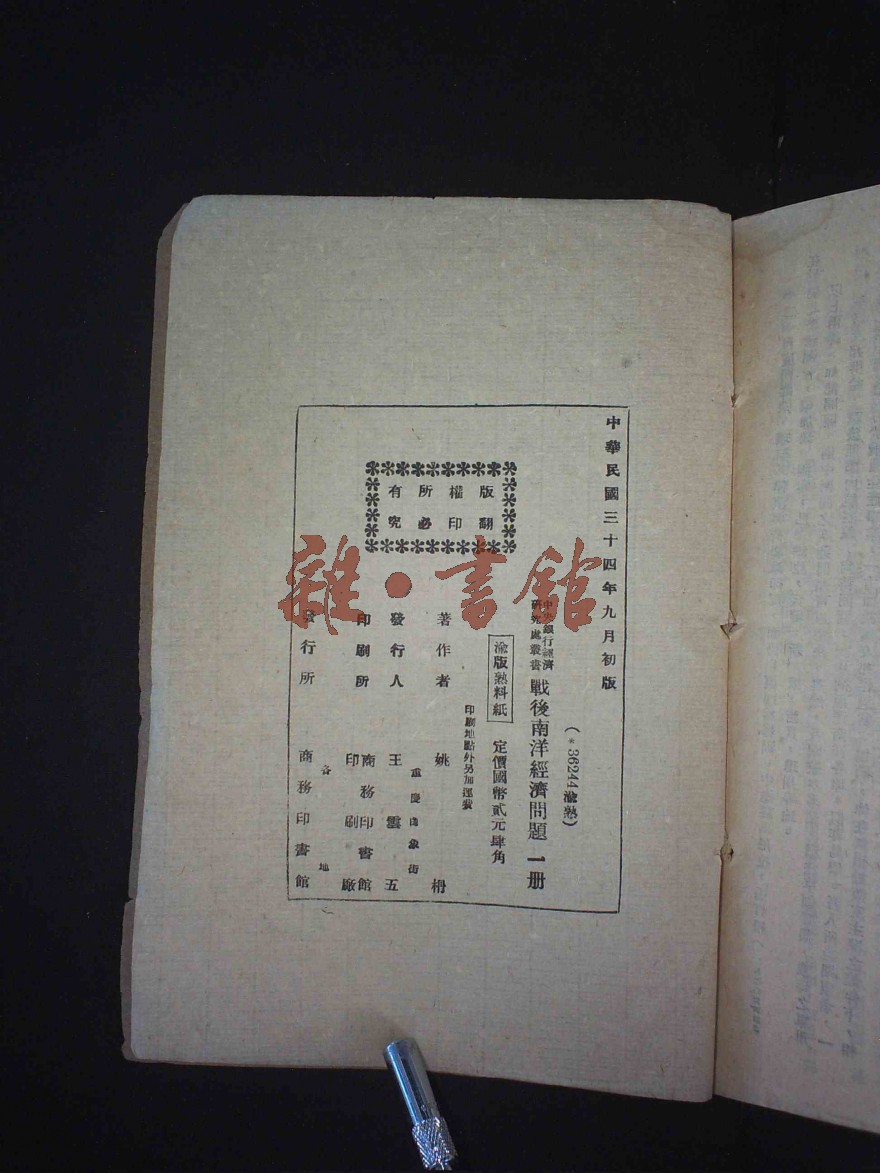 中華民國三十四年九月初版
(*36244渝熟)
中央銀行經濟
研究處叢書
戰後南洋經濟問題 一册
渝版熟料紙
定價國幣貳元肆角
印刷地點外另加運費
版權所有
翻印必究
著作者 姚枬
重慶白象街
發行人 王雲五
印刷所 商務印書館
印刷廠
各地
發行所 商務印書館
雜·書館